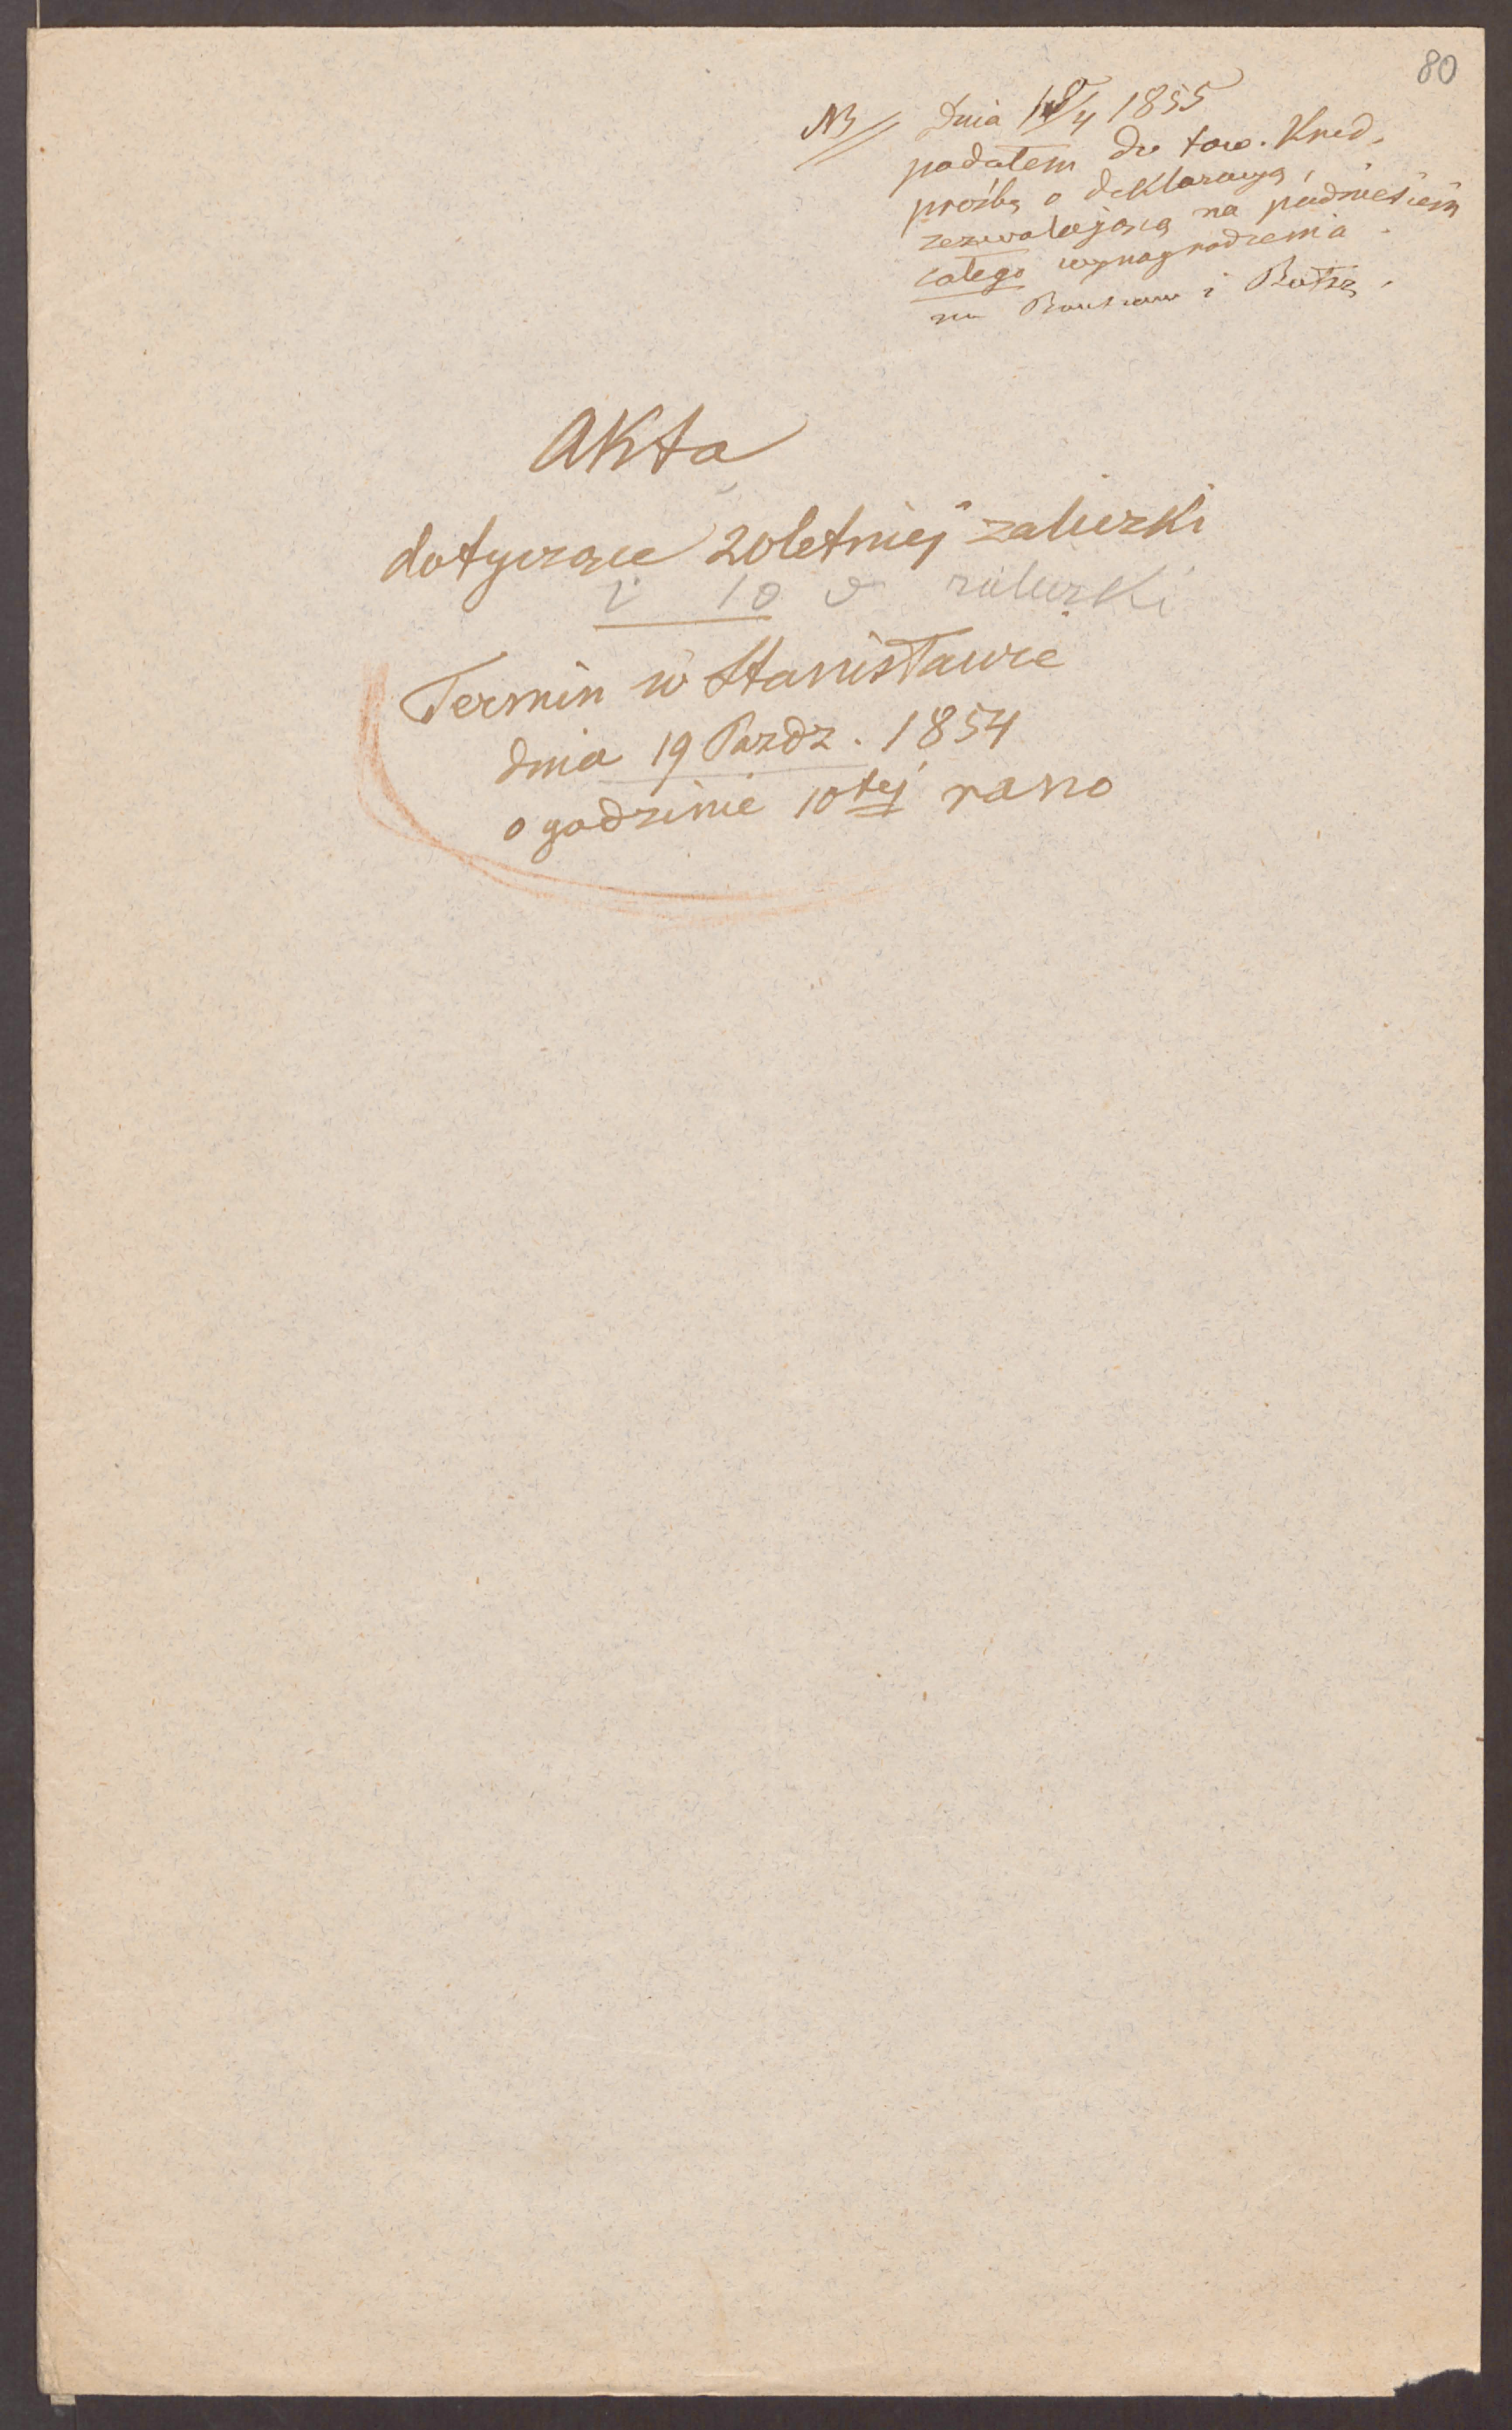 80
NB Dnia 18/4 1855
podałem do tow. Kred.
prośbę o deklaracyą,
zezwalającą na podniesienie
całego wynagrodzenia
za i
Akta
dotyczące 20letniej zaliczki
i 10 zaliczki
Termin w Stanisławie
dnia 19 Pazdz. 1854
o godzinie 10tej rano